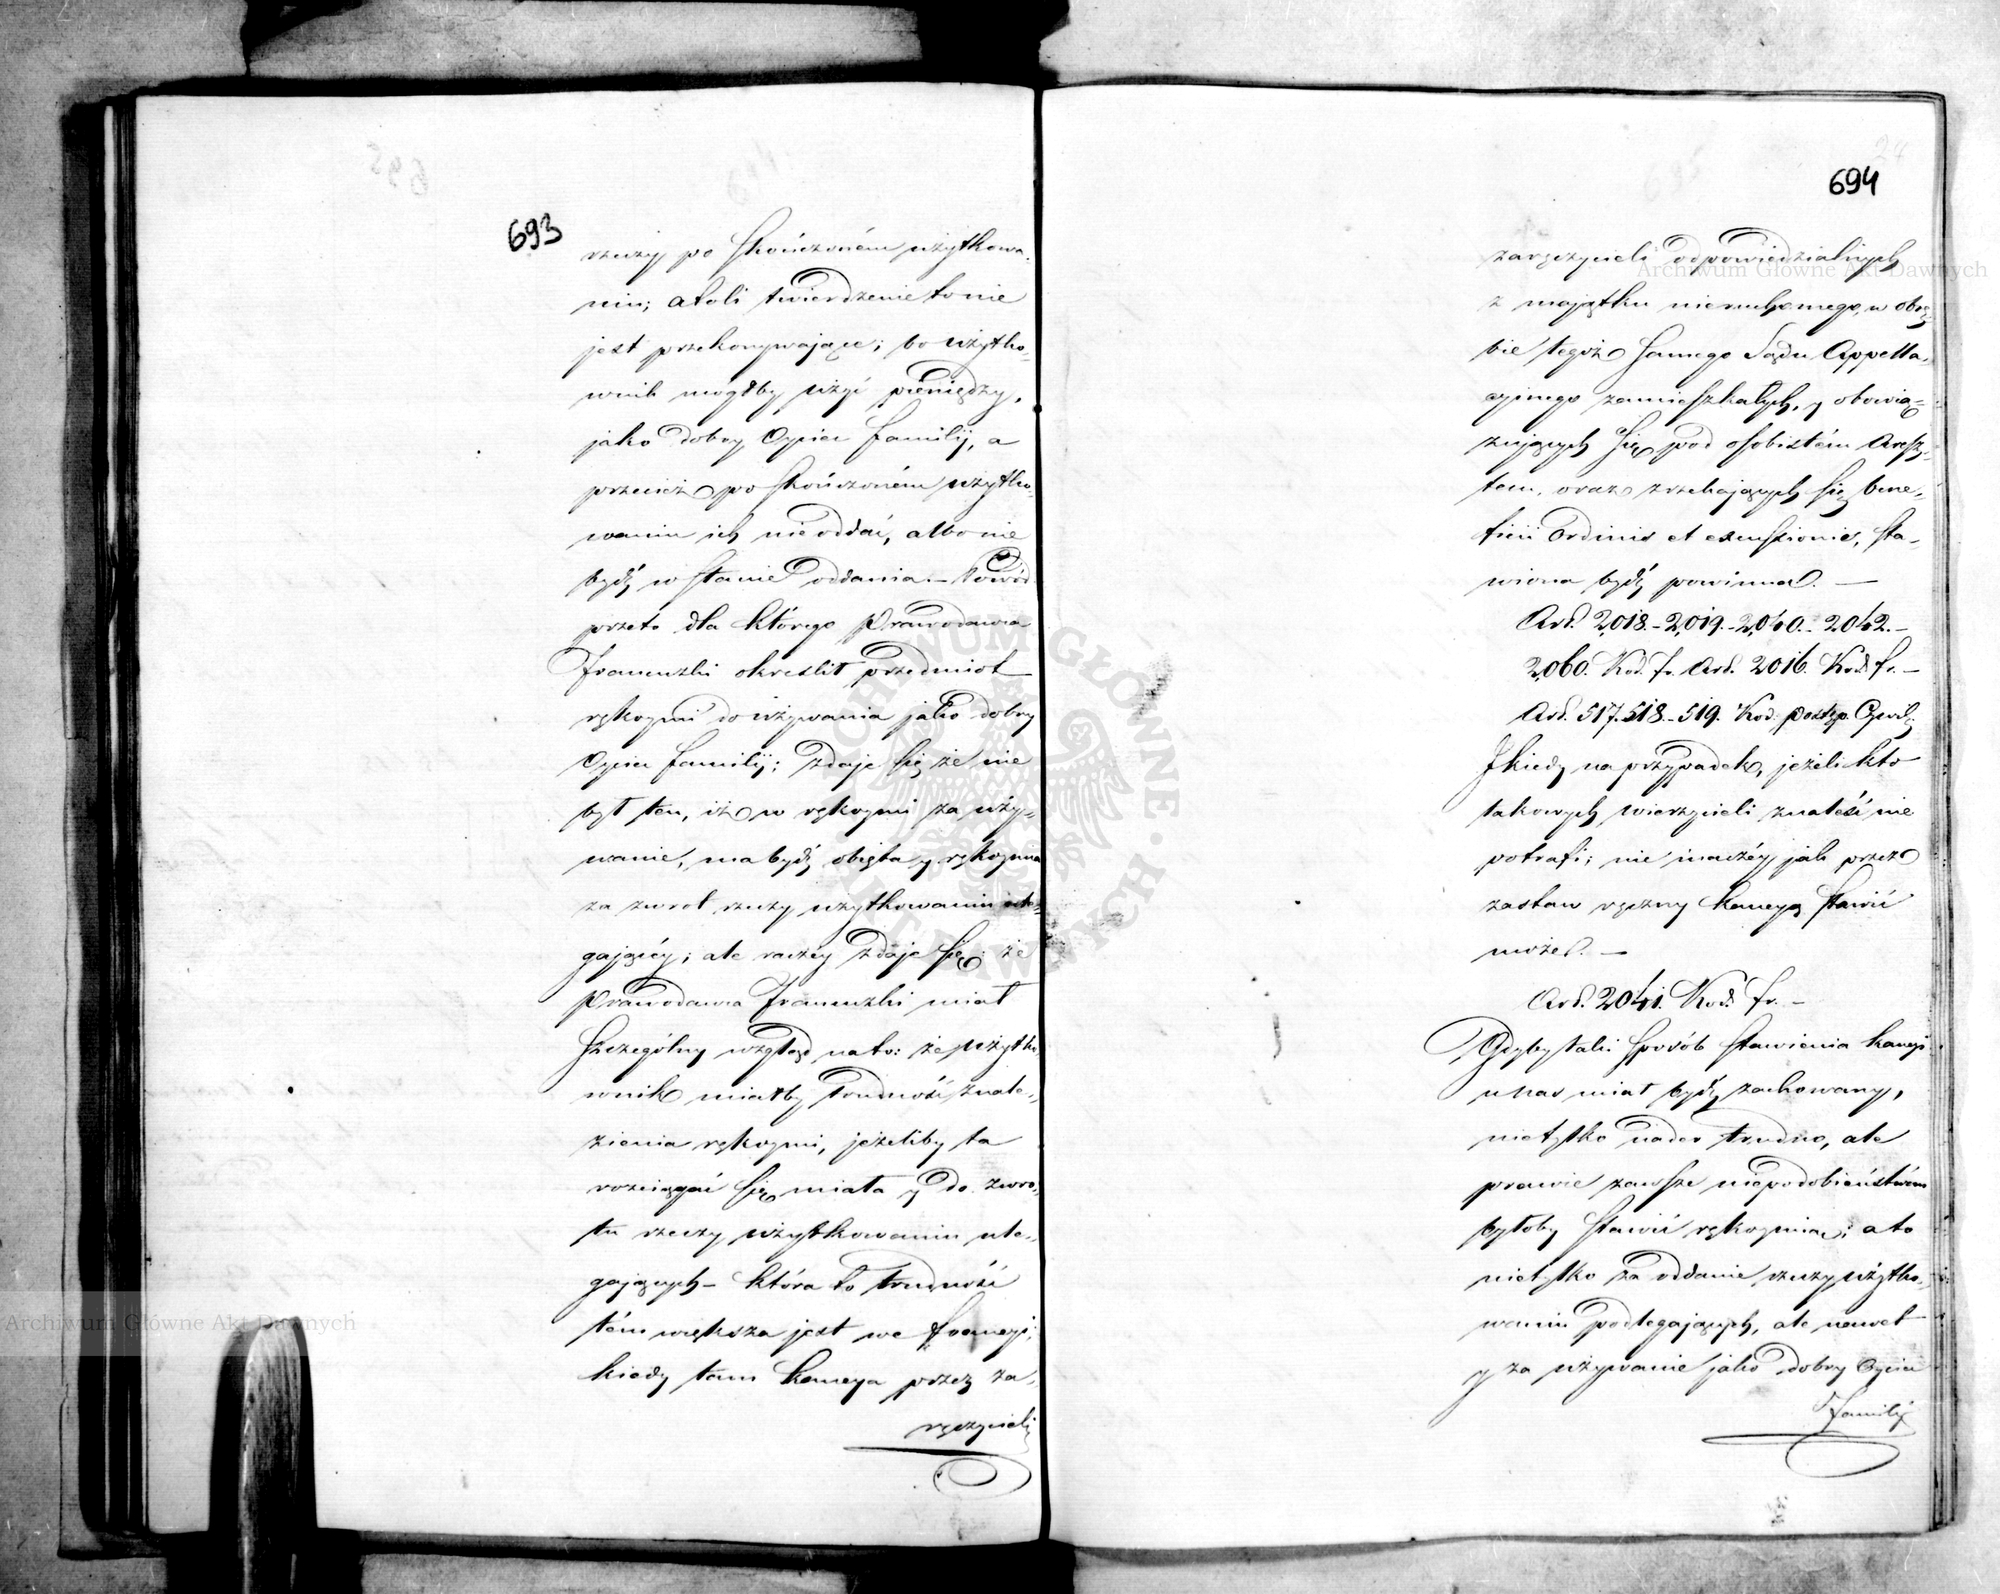 693
rzeczy po skończoném użytkowa-
niu; atoli twierdzenie to nie
jest przekonywające; bo użytko-
wnik mógłby użyć pieniędzy,
jako dobry Oyciec familij, a
przecież po skończoném użytko-
waniu ich nie oddać, albo nie
bydź w stanie oddania. – Powód
przeto dla którego Prawodawca
Francuzki określił przedmiot
rękoymi do używania jako dobry
Oyciec familij; zdaje się że nie
był ten, iż w rękoymi za uży-
wanie, ma bydź objęta y rękoymia
za zwrot rzeczy użytkowaniu ule-
gającéy; ale raczéy zdaje się; że
Prawodawca Francuzki miał
szczególny wzgląd na to: że użytko-
wnik miałby trudność znale-
zienia rękoymi, jeżeliby ta
rozciągać się miała y do zwro-
tu rzeczy użytkowaniu ule-
gających – która to trudność
tém większa jest we Francyi;
kiedy tam kaucya przez za-
ręczycieli
694
zaręczycieli odpowiedzialnych
z majątku nieruchomego, w obrę-
bie tegoż samego Sądu Appella-
cyinego zamieszkałych, y obowią-
zujących się pod osobistém Aresz-
tem, oraz zrzekających się bene-
ficii Ordinis et excussionis, sta-
wiona bydź powinna. —
Art. 2018. – 2019. – 2040. – 2042. –
2060. Kod. fr. Art. 2016. Kod. fr. –
Art. 517. 518. – 519. Kod: Postęp. Cywil:
I kiedy na przypadek, jeżeli kto
takowych wierzycieli znaleść nie
potrafi; nie inaczéy jak przez
zastaw ręczny kaucyą stawić
może. —
Art. 2041. Kod. fr. –
Gdyby taki sposób stawienia kaucyi
u nas miał bydź zachowany,
nietylko nader trudno, ale
prawie zawsze niepodobieństwem
byłoby stawić rękoymia; a to
nietylko za oddanie rzeczy użytko-
waniu podlegających, ale nawet
y za używanie jako dobry Oyciec
familij
Archiwum Główne Akt Dawnych
Archiwum Główne Akt Dawnych
ARCHIWUM GŁÓWNE AKT DAWNYCH